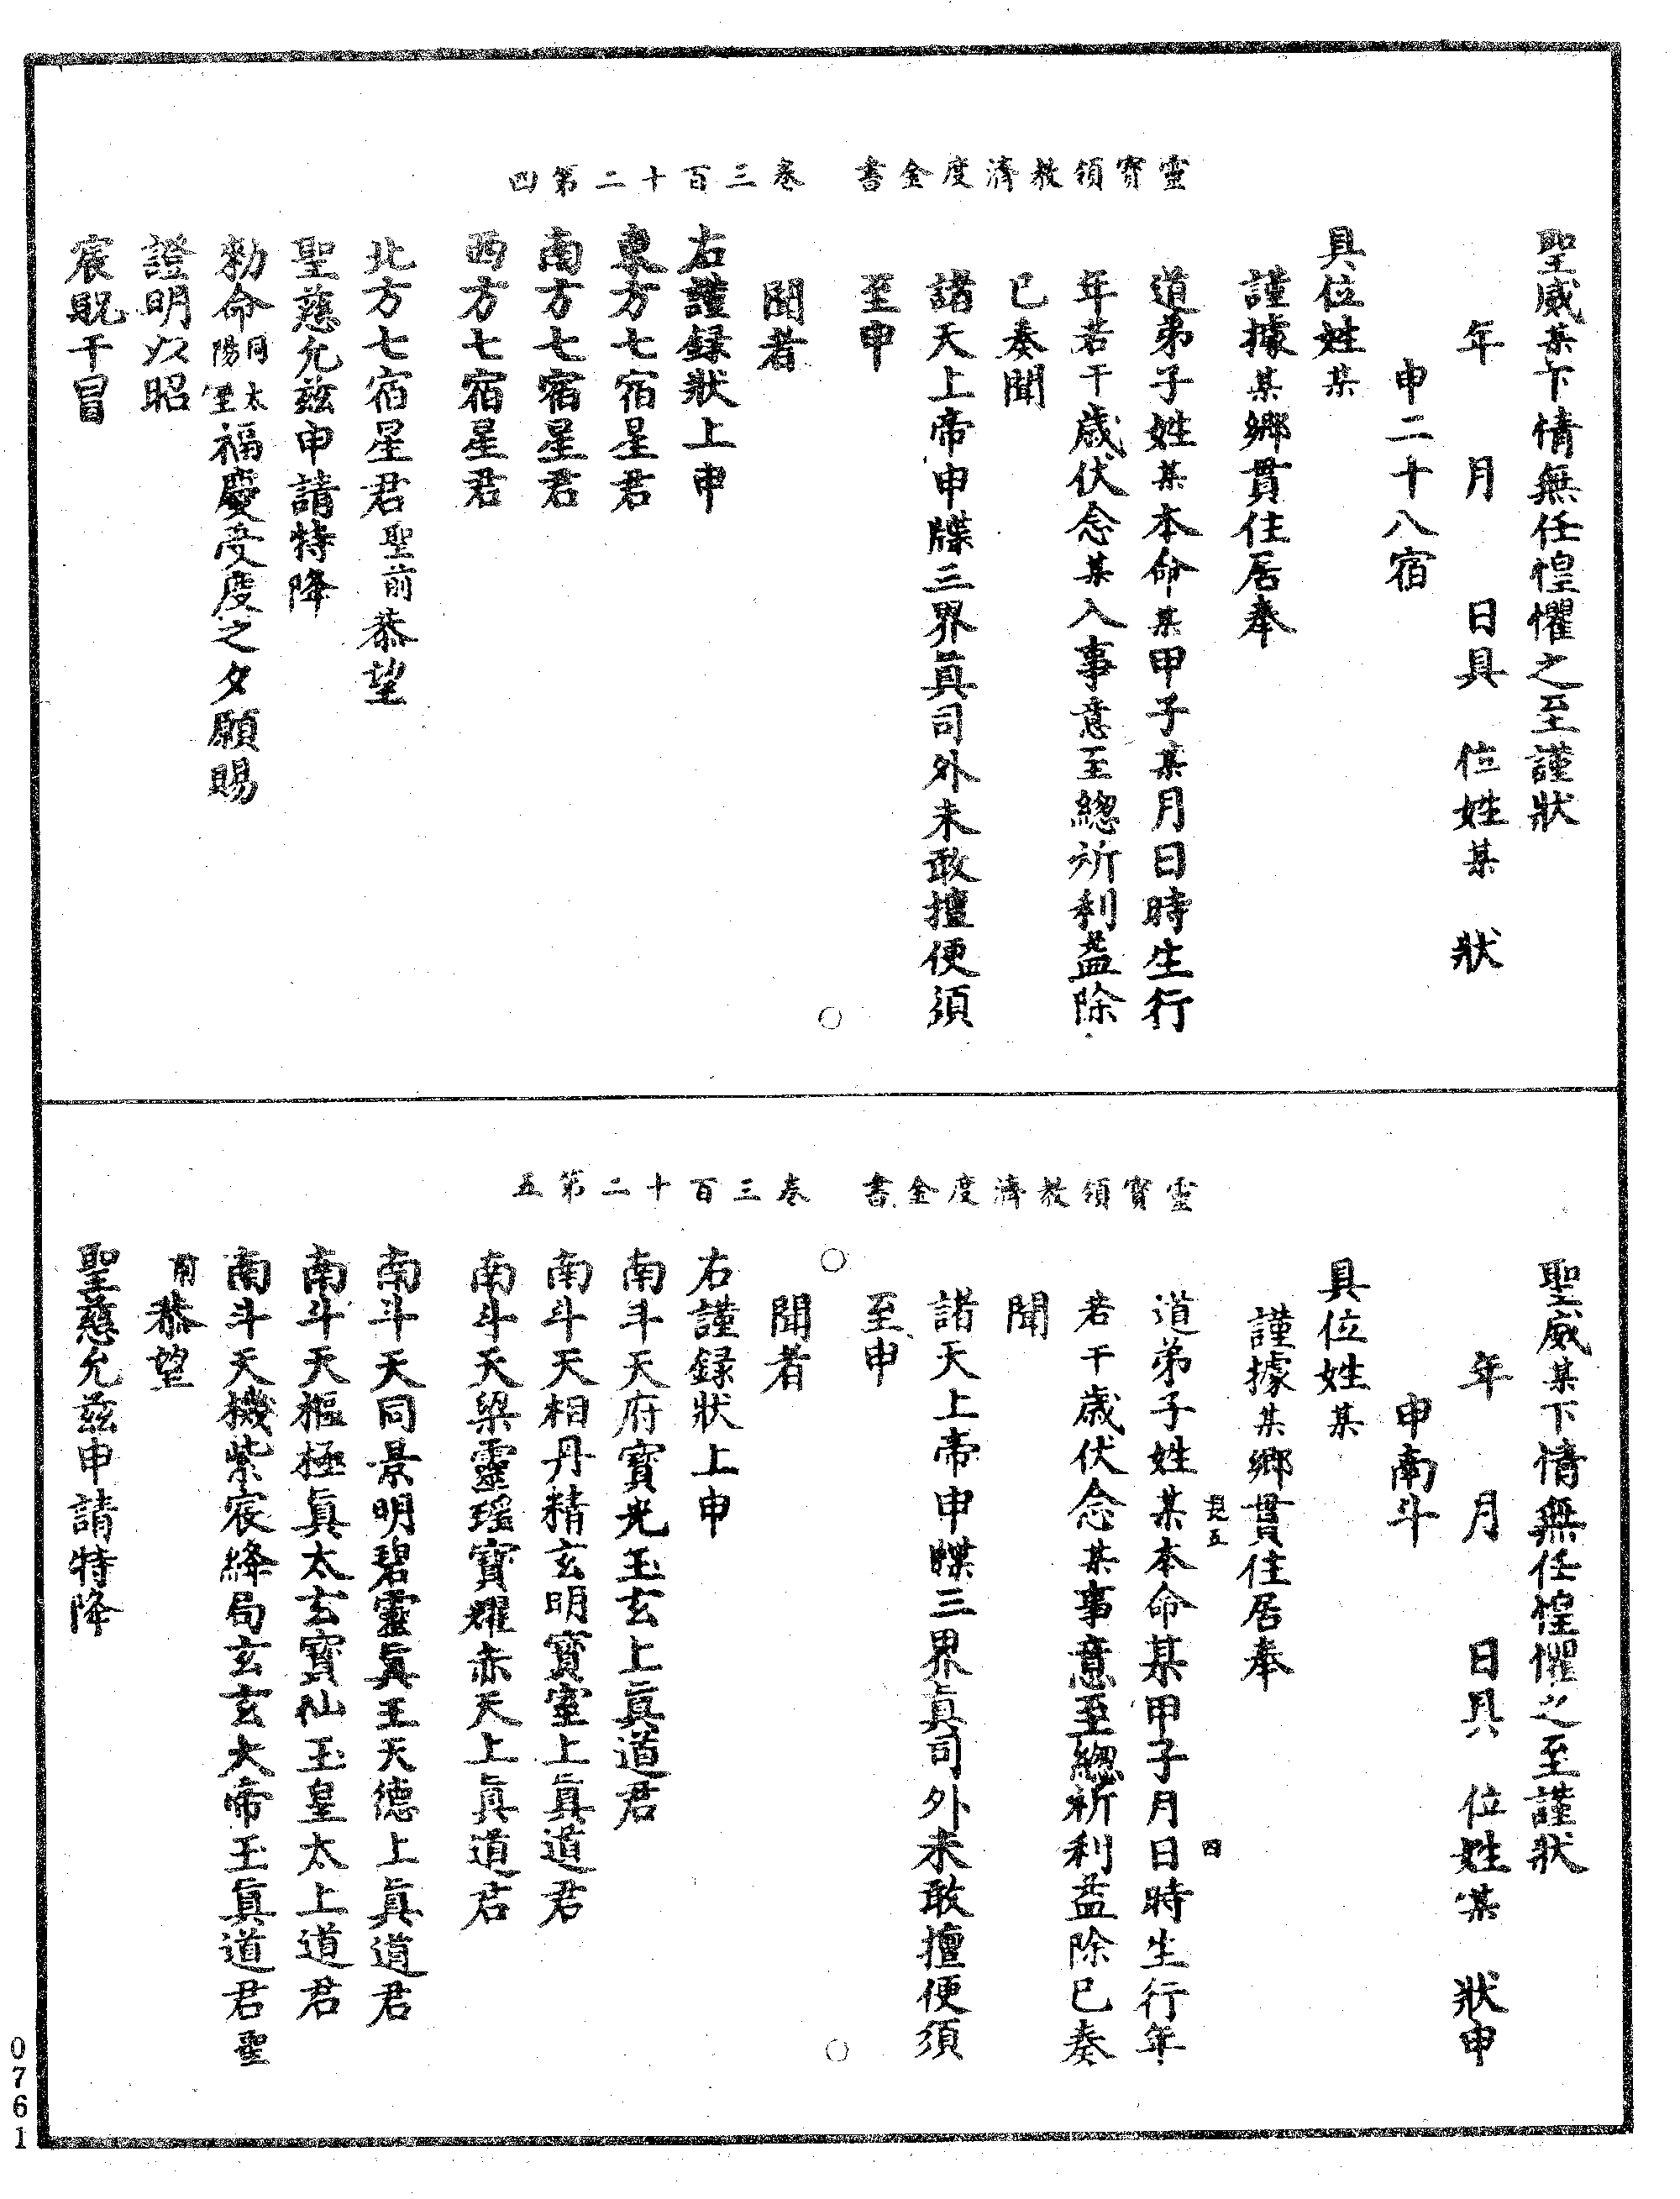 靈寶領教濟度金書　卷三百二十第四
聖威某下情無任惶懼之至謹狀
年　月　日具　位姓某　狀
申二十八宿
具位姓某
謹據某鄉貫住居奉
道弟子姓某本命某甲子某月日時生行
年若干歲伏念某入事意至緫祈利益除
已奏聞
諸天上帝申牒三界眞司外未敢擅便須
至申
聞者
右謹録狀上申
東方七宿星君
南方七宿星君
西方七宿星君
北方七宿星君聖前恭望
聖慈允兹申請特降
勑命同太陽至福慶受度之夕願賜
證明以昭
宸貺干冒
靈寶領教濟度金書　卷三百二十第五
聖威某下情無任惶懼之至謹狀
年　月　日具　位姓某　狀申
申南斗
具位姓某
謹據某鄉貫住居奉
五　四
道弟子姓某本命某甲子月日時生行年
若干歲伏念某事意至緫祈利益除已奏
聞
諸天上帝申牒三界眞司外未敢擅便須
至申
聞者
右謹録狀上申
南斗天府寶光玉玄上眞道君
南斗天相丹精玄明寶室上眞道君
南斗天梁靈瑶寶耀赤天上眞道君
南斗天同景明碧靈眞王天德上眞道君
南斗天樞極眞太玄寶仙玉皇太上道君
南斗天機紫宸絳局玄玄大帝玉眞道君聖
前恭望
聖慈允兹申請特降
0761